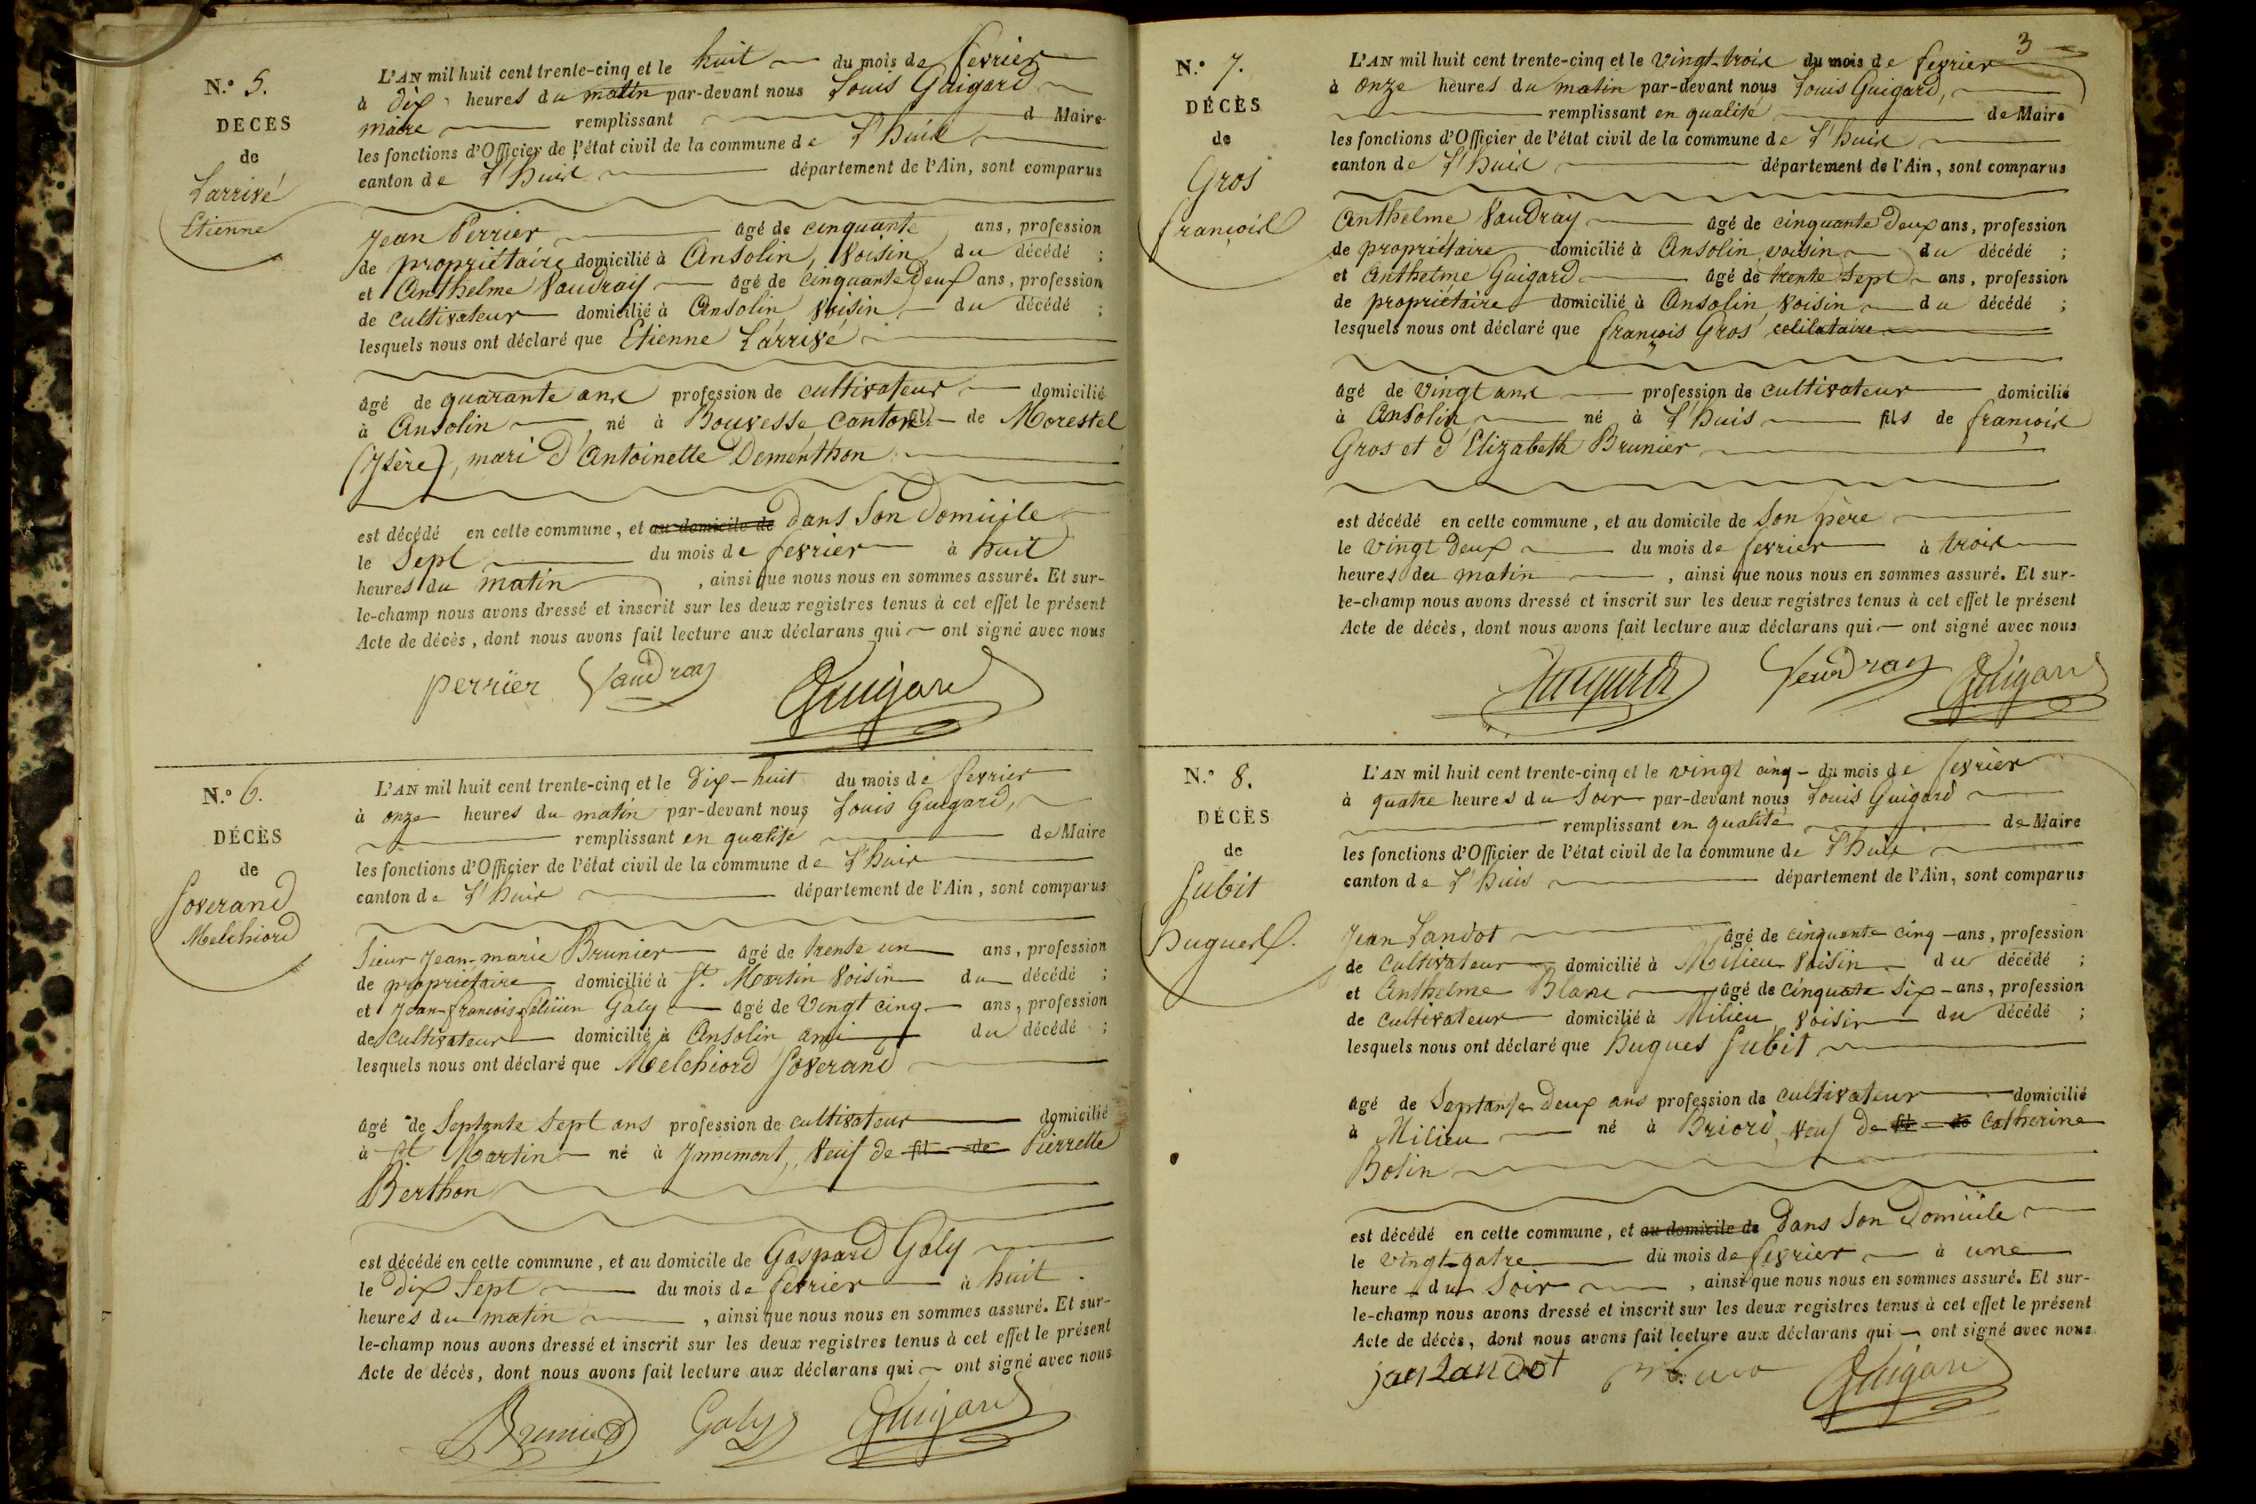 N.° 5.
DÉCÈS
de
Larrivé
Etienne
L'AN mil huit cent trente-cinq et le huit du mois de fevrier
à dix heures du matin par-devant nous Louis Guigard
maire remplissant d Maire
les fonctions d'Officier de l'état civil de la commune de L'huis
canton de L'huis département de l'Ain, sont comparus
Jean Perrier âgé de cinquante ans, profession
de propriétaire domicilié à Ansolin, Voisin du décédé ;
et Anthelme Vaudray âgé de cinquante Deux ans, profession
de cultivateur domicilié à Ansolin, Voisin du décédé ;
lesquels nous ont déclaré que Etienne Larrivé
âgé de quarante ans profession de cultivateur domicilié
à Ansolin né à Bouvesse Canton de Morestel
(Isère), mari d'Antoinette Dementhon
est décédé en cette commune, et au domicile de dans Son Domicile
le Sept du mois de fevrier à huit
heures du matin , ainsi que nous nous en sommes assuré. Et sur-
le-champ nous avons dressé et inscrit sur les deux registres tenus à cet effet le présent
Acte de décès, dont nous avons fait lecture aux déclarans qui ont signé avec nous
perrier Vaudray Guigard
N.° 6.
DÉCÈS
de
Soverand
Melchiord
L'AN mil huit cent trente-cinq et le dix-huit du mois de fevrier
à onze heures du matin par-devant nous Louis Guigard,
remplissant en qualité de Maire
les fonctions d'Officier de l'état civil de la commune de L'huis
canton de L'huis département de l'Ain, sont comparus
Sieur Jean-marie Brunier âgé de trente un ans, profession
de propriétaire domicilié à St. Martin Voisin du décédé ;
et Jean-françois Galy âgé de Vingt cinq ans, profession
de cultivateur domicilié à Ansolin ami du décédé ;
lesquels nous ont déclaré que Melchiord Soverand
âgé de Septante Sept ans profession de cultivateur domicilié
à St Martin né à Innimont, Veuf de fil de Pierrette
Berthon
est décédé en cette commune, et au domicile de Gaspard Galy
le Dix Sept du mois de fevrier à huit
heures du matin , ainsi que nous nous en sommes assuré. Et sur-
le-champ nous avons dressé et inscrit sur les deux registres tenus à cet effet le présent
Acte de décès, dont nous avons fait lecture aux déclarans qui ont signé avec nous
Brunier Galy Guigard
3
N.° 7.
DÉCÈS
de
Gros
françois
L'AN mil huit cent trente-cinq et le Vingt-trois du mois de fevrier
à onze heures du matin par-devant nous Louis Guigard,
remplissant en qualité de Maire
les fonctions d'Officier de l'état civil de la commune de L'huis
canton de L'huis département de l'Ain, sont comparus
Anthelme Vaudray âgé de cinquante Deux ans, profession
de propriétaire domicilié à Ansolin, voisin du décédé ;
et Anthelme Guigard âgé de trente Sept ans, profession
de propriétaire domicilié à Ansolin, Voisin du décédé ;
lesquels nous ont déclaré que françois Gros celibataire
âgé de Vingt ans profession de cultivateur domicilié
à Ansolin né à L'huis fils de françois
Gros et d'Elizabeth Brunier
est décédé en cette commune, et au domicile de Son père
le Vingt Deux du mois de fevrier à trois
heures du matin , ainsi que nous nous en sommes assuré. Et sur-
le-champ nous avons dressé et inscrit sur les deux registres tenus à cet effet le présent
Acte de décès, dont nous avons fait lecture aux déclarans qui ont signé avec nous
Guigard Vaudray Guigard
N.° 8.
DÉCÈS
de
Subit
hugues.
L'AN mil huit cent trente-cinq et le vingt cinq du mois de fevrier
à quatre heures du Soir par-devant nous Louis Guigard
remplissant en qualité de Maire
les fonctions d'Officier de l'état civil de la commune de L'huis
canton de L'huis département de l'Ain, sont comparus
Jean Landot âgé de cinquante cinq ans, profession
de cultivateur domicilié à Milieu Voisin du décédé ;
et Anthelme Blanc âgé de cinquante Six ans, profession
de cultivateur domicilié à Milieu, voisin du décédé ;
lesquels nous ont déclaré que hugues Subit
âgé de Septante deux ans profession de cultivateur domicilié
à Milieu né à Briord, Veuf de fil de Catherine
Botin
est décédé en cette commune, et au domicile de Dans Son Domicile
le vingt-qatre du mois de fevrier à une
heure du Soir , ainsi que nous nous en sommes assuré. Et sur-
le-champ nous avons dressé et inscrit sur les deux registres tenus à cet effet le présent
Acte de décès, dont nous avons fait lecture aux déclarans qui ont signé avec nous
jan Landot Guigard